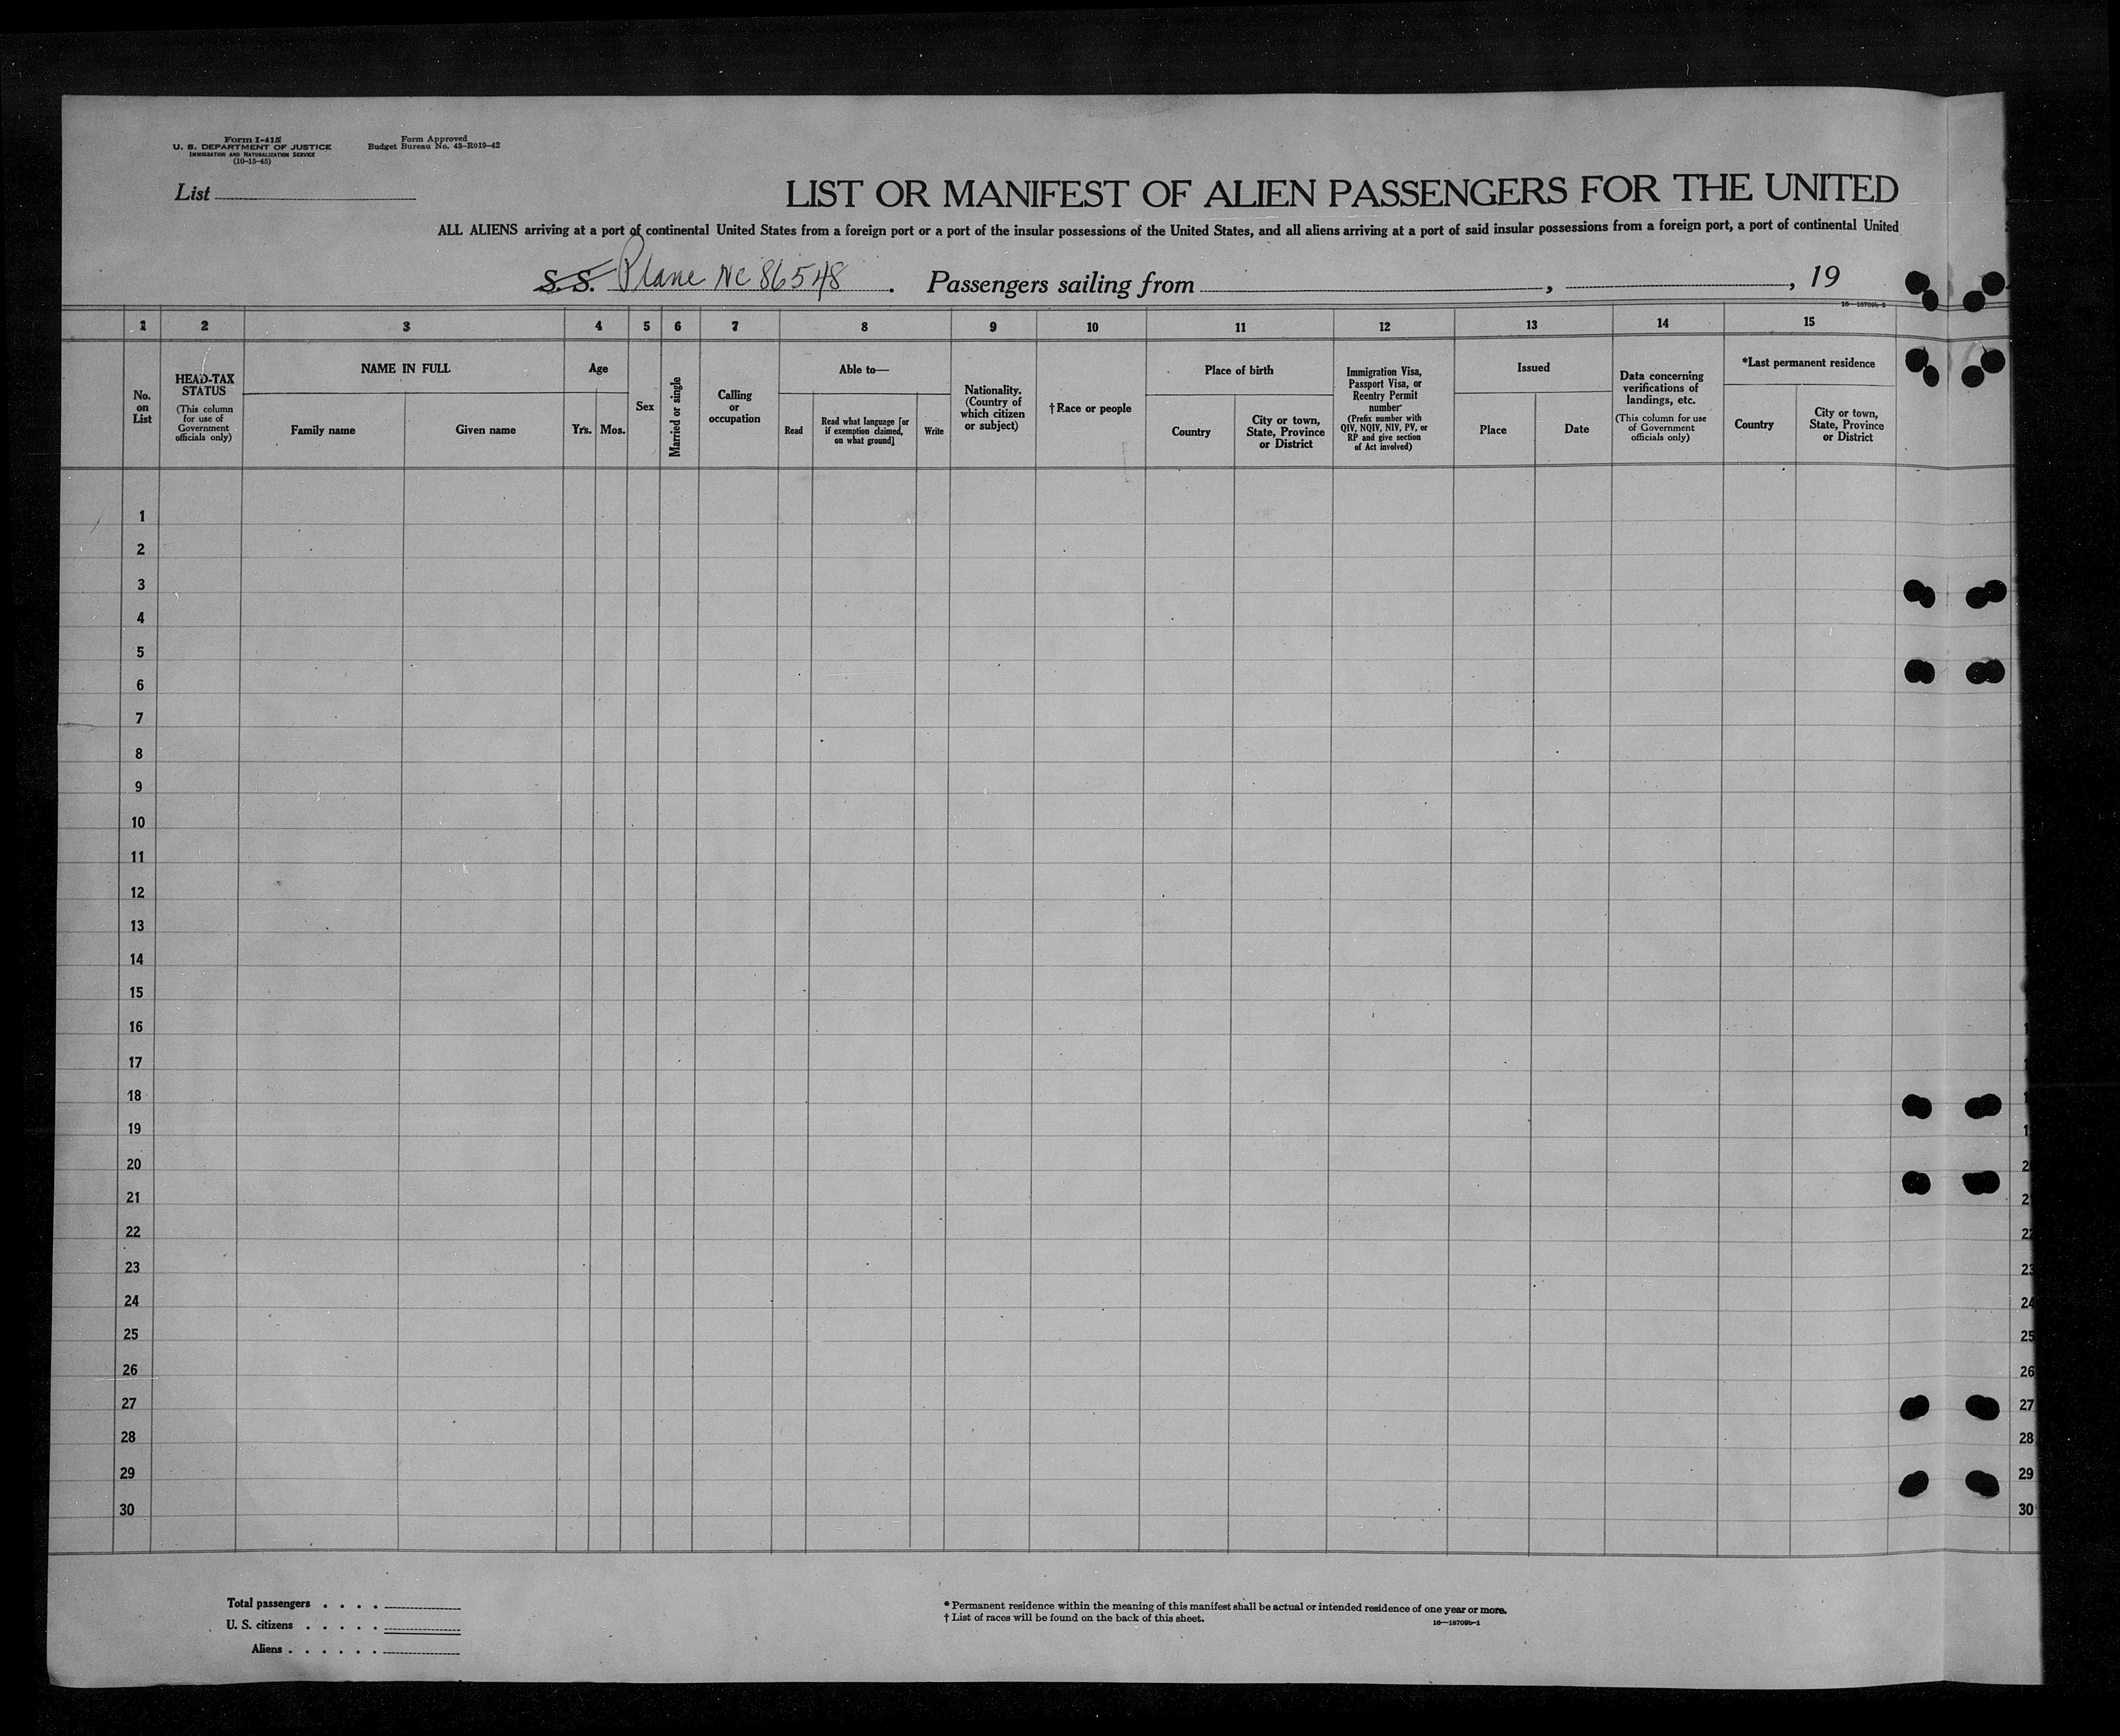 Form I-415
U. S. DEPARTMENT OF JUSTICE
IMMIGRATION AND NATURALIZATION SERVICE
(10-15-45)
Form Approved
Budget Bureau No. 43-R019-42
List
LIST OR MANIFEST OF ALIEN PASSENGERS FOR THE UNITED
ALL ALIENS arriving at a port of continental United States from a foreign port or a port of the insular possessions of the United States, and all aliens arriving at a port of said insular possessions from a foreign port, a port of continental United
S. S. Plane NC 86548. Passengers sailing from , , 19
16—18709b-2
1 2 3 4 5 6 7 8 9 10 11 12 13 14 15
No. on List
HEAD-TAX STATUS
(This column for use of Government officials only)
NAME IN FULL
Family name
Given name
Age
Yrs.
Mos.
Sex
Married or single
Calling or occupation
Able to—
Read
Read what language [or if exemption claimed, on what ground]
Write
Nationality. (Country of which citizen or subject)
† Race or people
Place of birth
Country
City or town, State, Province or District
Immigration Visa, Passport Visa, or Reentry Permit number
(Prefix number with QIV, NQIV, NIV, PV, or RP and give section of Act involved)
Issued
Place
Date
Data concerning verifications of landings, etc.
(This column for use of Government officials only)
*Last permanent residence
Country
City or town, State, Province or District
1
2
3
4
5
6
7
8
9
10
11
12
13
14
15
16
17
18
19
20
21
22 22
23 23
24 24
25 25
26 26
27 27
28 28
29 29
30 30
Total passengers . . . .
U. S. citizens . . . . .
Aliens . . . . . .
* Permanent residence within the meaning of this manifest shall be actual or intended residence of one year or more.
† List of races will be found on the back of this sheet.
16—18709b-1